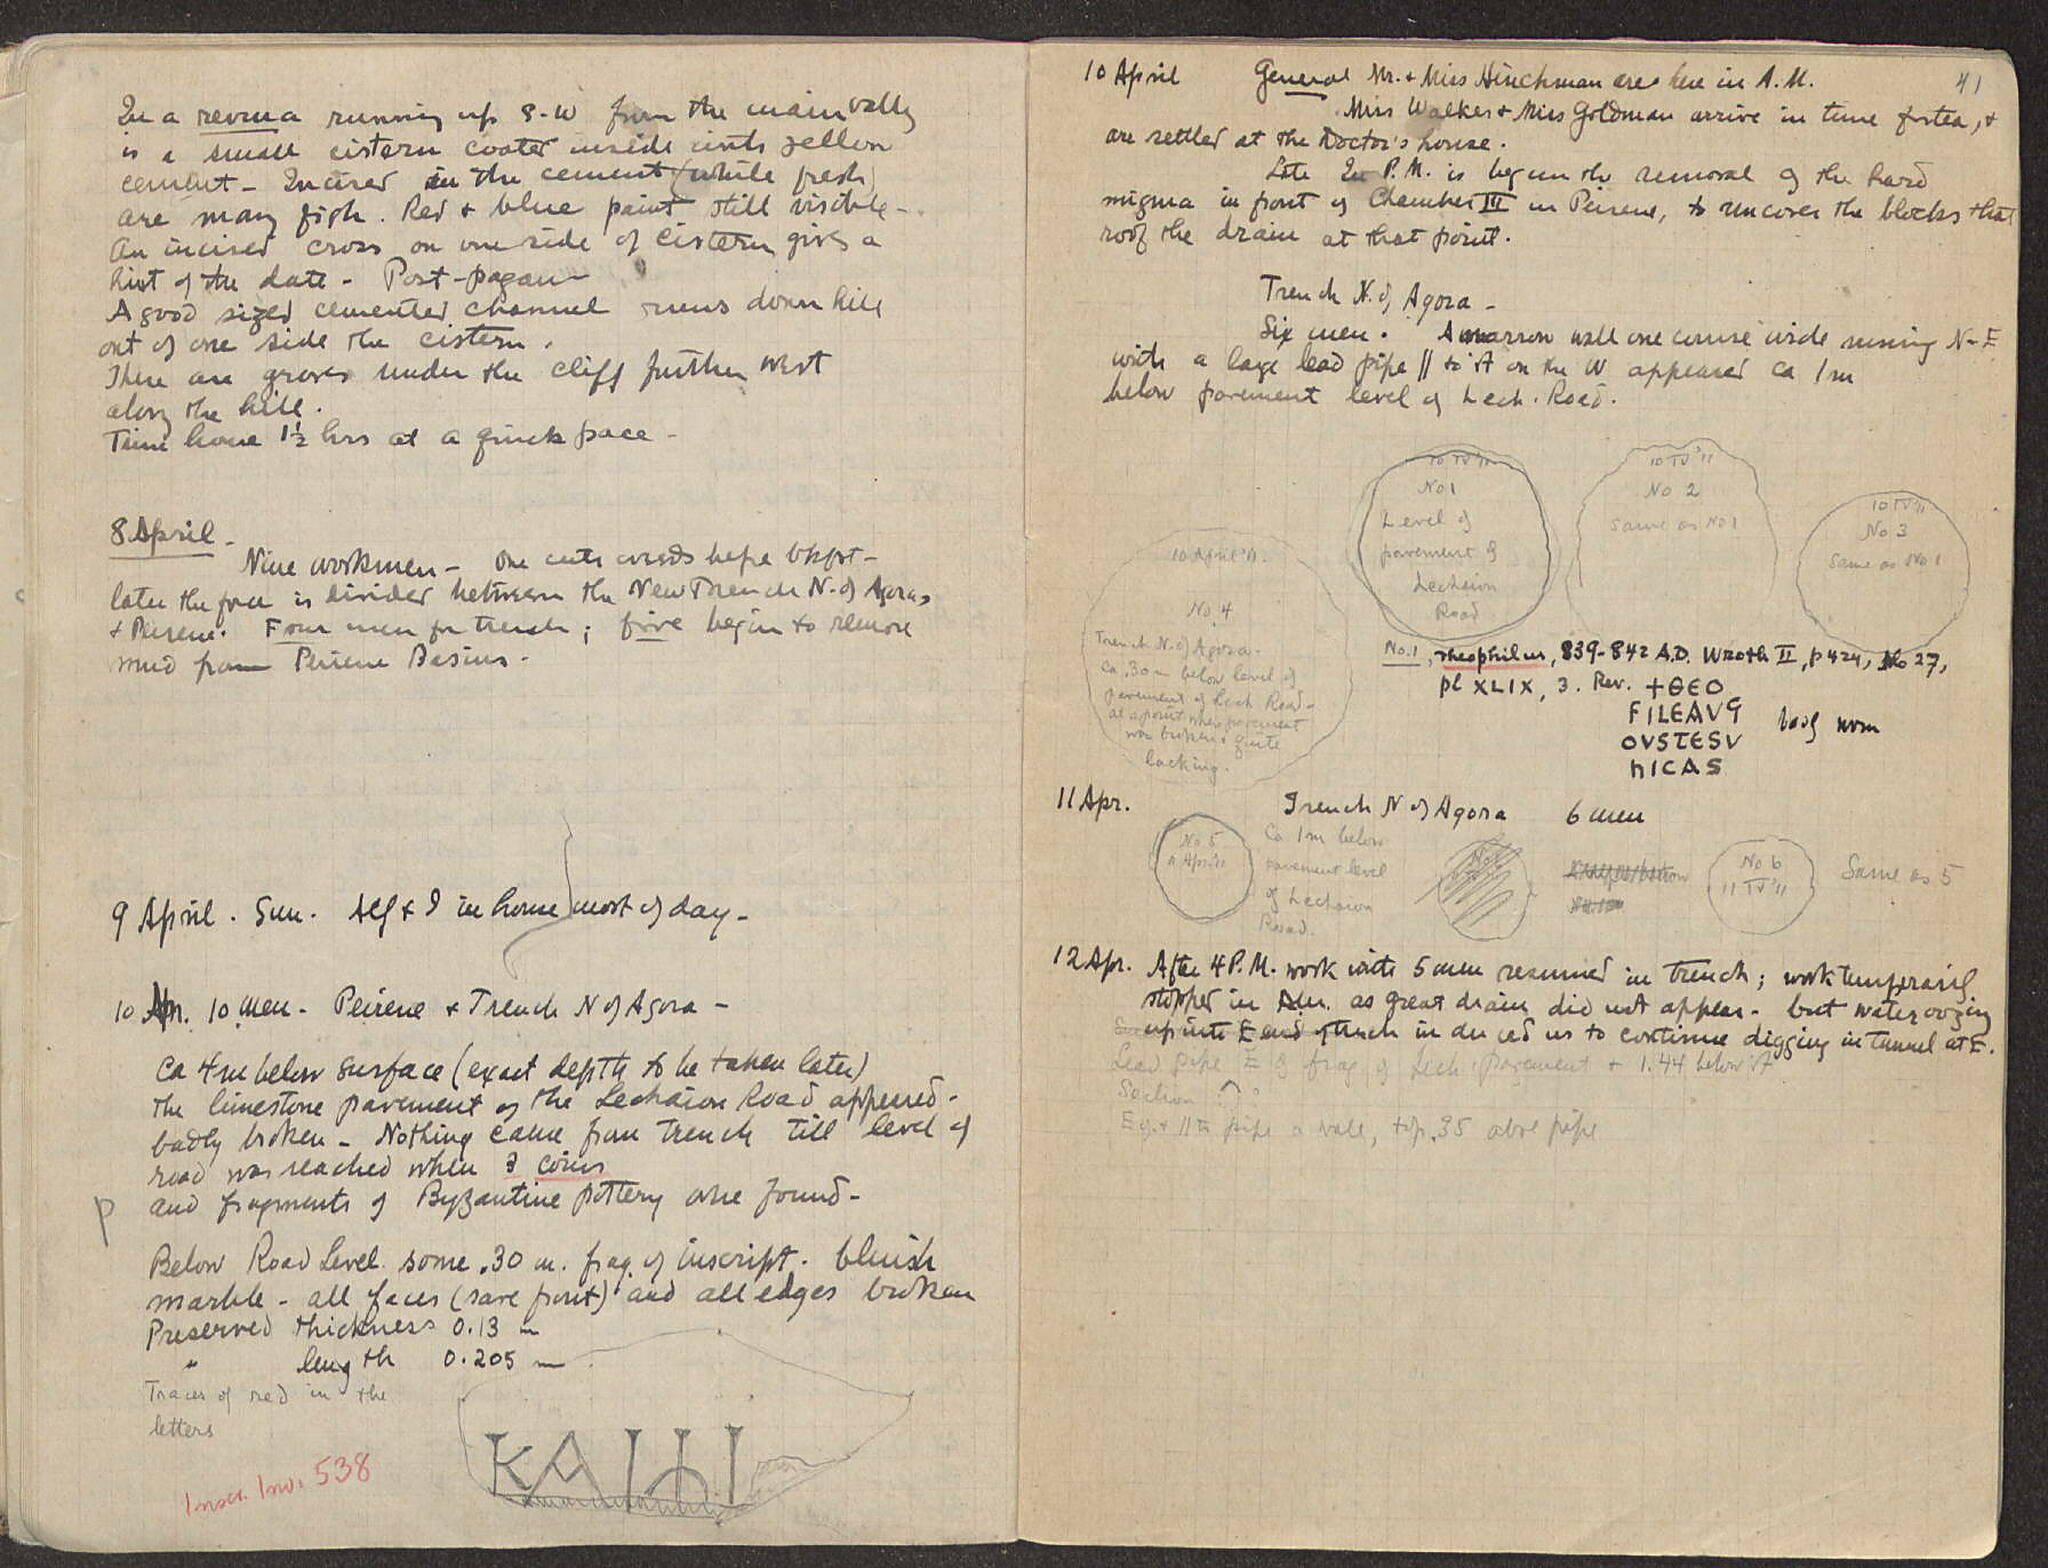 In a revma running up S-W from the main vally
is a small cistern coated inside with yellow
cement - Incised in the cement (while fresh)
are many fish. Red & blue paint still visible -
An incised cross on one side of cistern gives a
hint of the date - Post-pagan -
A good sized cemented channel runs down hill
out of one side the cistern.
There are graves under the cliff further west
along the hill.
Time home 1½ hrs at a quick pace -
8 April -
Nine workmen - One cuts weeds before bkfst -
later the force is divided between the New Trench N. of Agora,
& Peirene. Four men for trench; five begin to remove
mud from Peirene Basins -
9 April. Sun. & I in house most of day -
10 Apr. 10 men - Peirene & Trench N of Agora -
Ca 4m below surface (exact depth to be taken later)
the limestone pavement of the Lechaion Road appeared -
badly broken - Nothing came from trench till level of
road was reached when 3 coins
p and fragments of Byzantine pottery were found -
Below Road Level some .30 m. frag. of inscript. bluish
marble - all faces (save front) and all edges broken
Preserved thickness 0.13 m
" length 0.205 m
Traces of red in the
letters
Inscr. Inv. 538
KAI
41
10 April General Mr. & Miss Hinchman are here in A.M.
Miss Walker & Miss Goldman arrive in time for tea, &
are settled at the Doctor's house.
Late in P.M. is begun the removal of the hard
migma in front of Chamber III in Peirene, to uncover the blocks that
roof the drain at that point.
Trench N. of Agora -
Six men. A narrow wall one course wide running N-E
with a large lead pipe // to it on the W appeared ca 1m
below pavement level of Lech. Road.
10 IV '11
No 1
Level of
pavement of
Lechaion
Road
10 IV '11
No 2
Same as No 1
10 IV '11
No 3
Same as No 1
10 April '11.
No. 4
Trench N. of Agora -
Ca .30m below level of
pavement of Lech Road -
at a point where pavement
was broken & quite
lacking.
No. 1, Theophilus, 839-842 A.D. Wroth II, p 424, No 27,
pl XLIX, 3. Rev. +ΘEO
FILEAVG
OVSTESV
hICAS
badly worn
11 Apr. Trench N of Agora 6 men
No 5
11 Apr '11
Ca 1m below
pavement level
of Lechaion
Road.
No 6
11 IV '11
Same as 5
12 Apr. After 4 P.M. work with 5 men resumed in trench; work temporarily
stopped in A.M. as great drain did not appear - but water oozing
up into E end of trench induced us to continue digging in tunnel at E.
Lead pipe E of frag of Lech. pavement & 1.44 below it
Section
E of & // to pipe a wall, top .35 above pipe